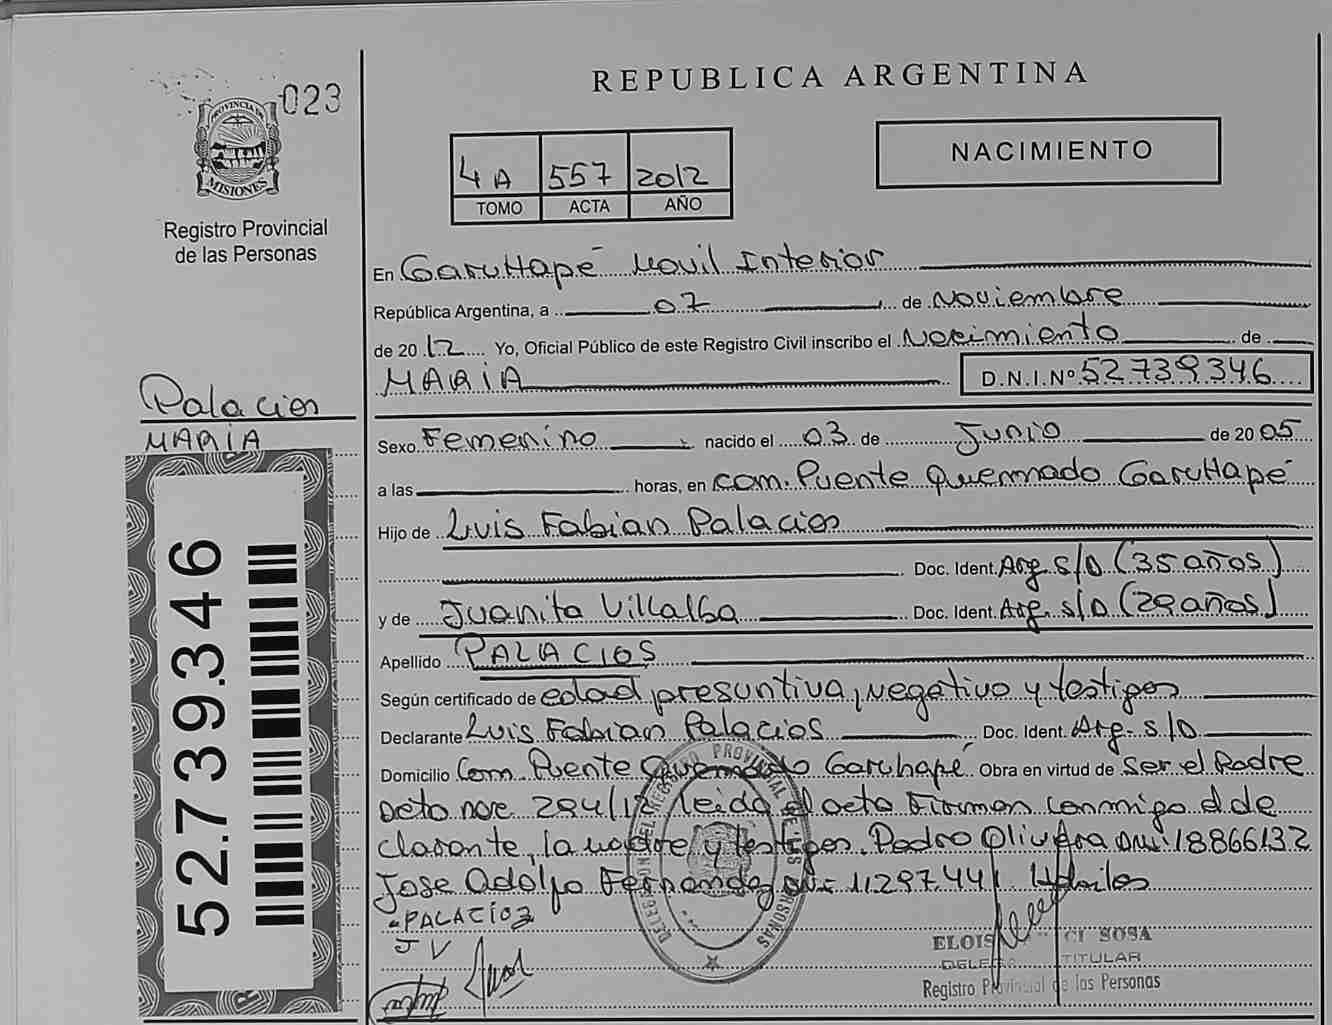 023
PROVINCIA DE
MISIONES
Registro Provincial
de las Personas
REPUBLICA ARGENTINA
NACIMIENTO
4 A 557 2012
TOMO ACTA AÑO
En Garuhapé Movil Interior
República Argentina, a 07 de Noviembre
de 2012 Yo, Oficial Público de este Registro Civil inscribo el Nacimiento de
MARIA D.N.I.Nº 52739346
Palacios
MARIA
Sexo Femenino nacido el 03 de Junio de 2005
a las horas, en Com. Puente Quemado Garuhapé
Hijo de Luis Fabian Palacios
Doc. Ident. Arg. S/D (35 años)
y de Juanita Villalba Doc. Ident. Arg. S/D (29 años)
Apellido PALACIOS
Según certificado de edad presuntiva, negativo y testigos
Declarante Luis Fabian Palacios Doc. Ident. Arg. S/D
Domicilio Com. Puente Quemado Garuhapé Obra en virtud de Ser el Padre
leida el acta Firman conmigo el de
clarante, la madre y testigos. Pedro Olivera DNI: 18866132
Jose Adolfo Fernandez DNI: 11297441
PALACIOS
J V
52.739.346
REGISTRO PROVINCIAL DE LAS PERSONAS
SOSA
TITULAR
Registro Provincial de las Personas